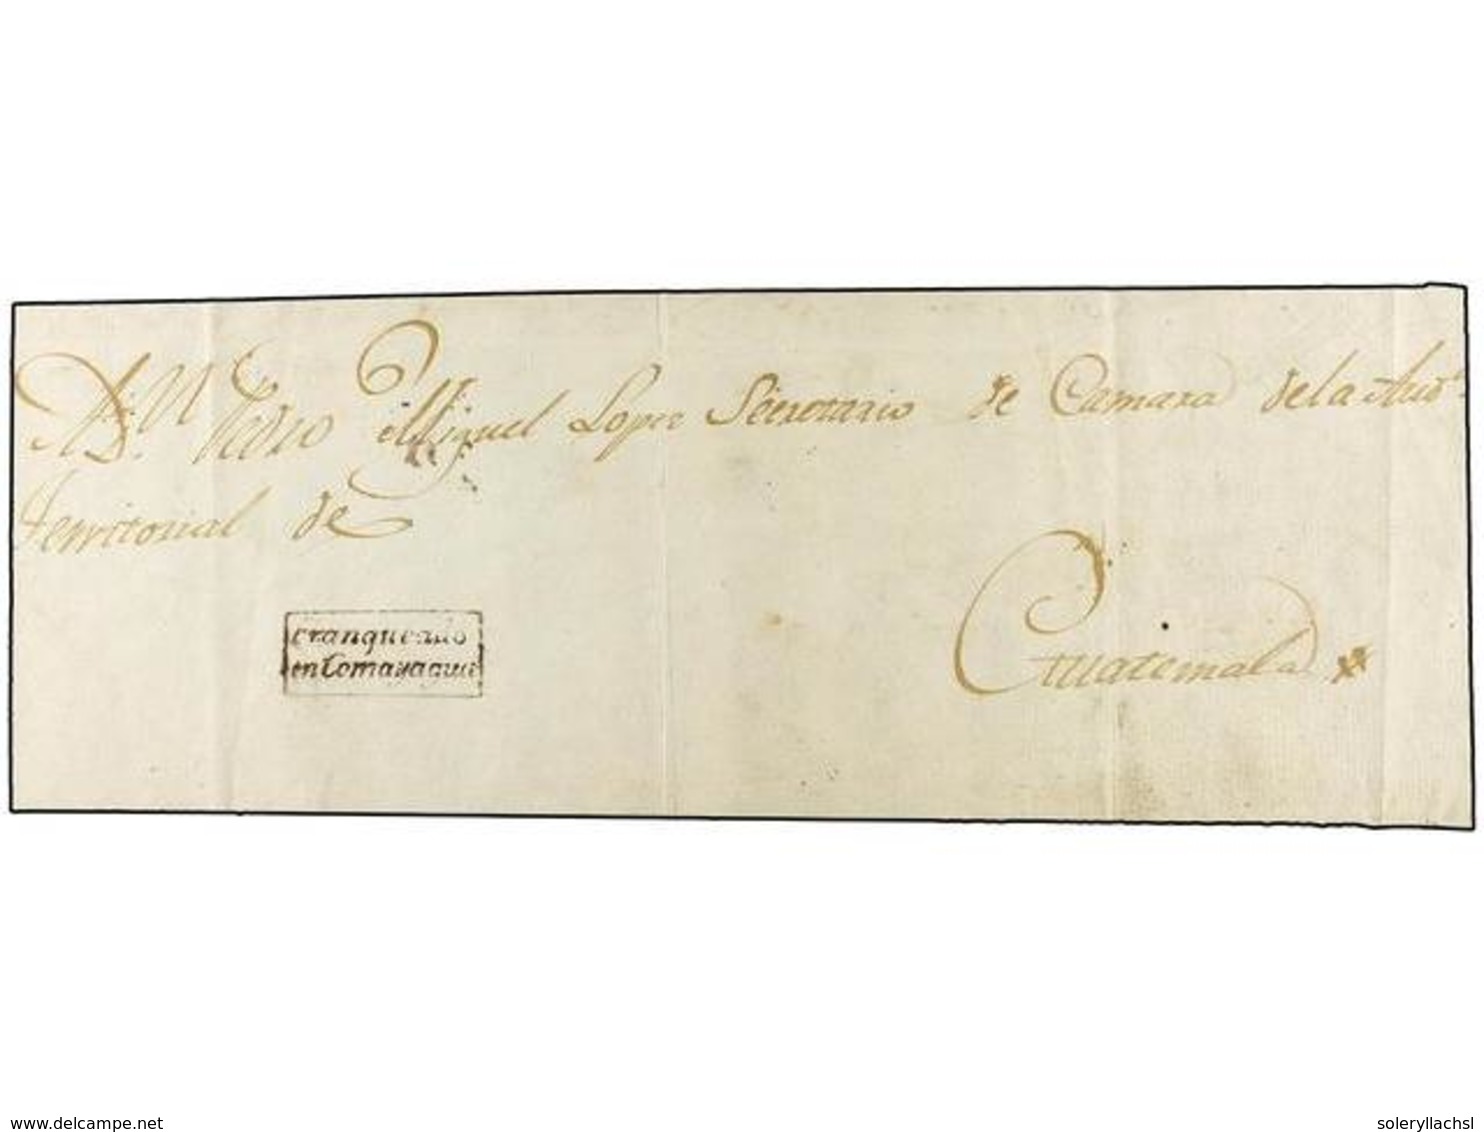 A D.n Pedro Miguel Lopez Secretario de Camara de la Aud.a
Territorial de
Guatemala
Franqueado
en Comayagua
www.delcampe.net
soleryllachsl